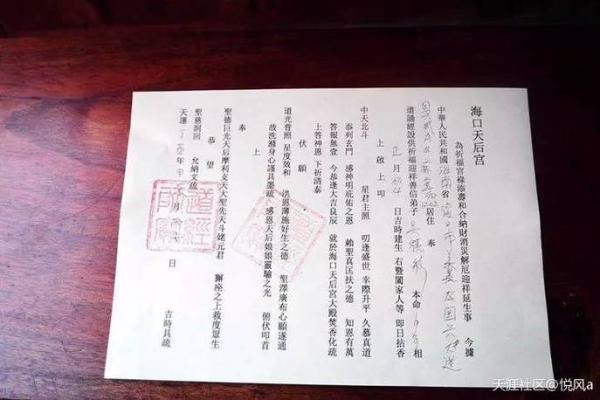 海口天后宮
為祈福官祿添壽和合納財消災解厄迎祥延生事 今據
中華人民共和國海南省海口市
居住 奉
道誦經設供祈福迎祥善信弟子 本命 相
正月初 日吉時建生 右暨闔家人等 即日拈香
上啟上叩
中天北斗 星君主照 叨逢盛世 幸際升平 久慕真道
泰列玄門 感神明庇佑之恩 賴聖真匡扶之德 知恩有萬
答報無壹 今恭逢大吉良辰 就於海口天后宮大殿焚香化疏
上答神恩 下祈清泰
伏願
道光普照 星度效和 洪恩薄施好生之德 聖澤廣布心願遂通
故洗潑身心謹具墨疏 感恩天后娘娘靈驗之光 俯伏叩首
奉上
聖德巨光天后摩利支天大聖先天斗姥元君 獬座之上救度眾生
恭望
聖慈洞回 允納文疏
天運丁酉年 月 日 吉時具疏
道經師寶
天涯社区@悦风a